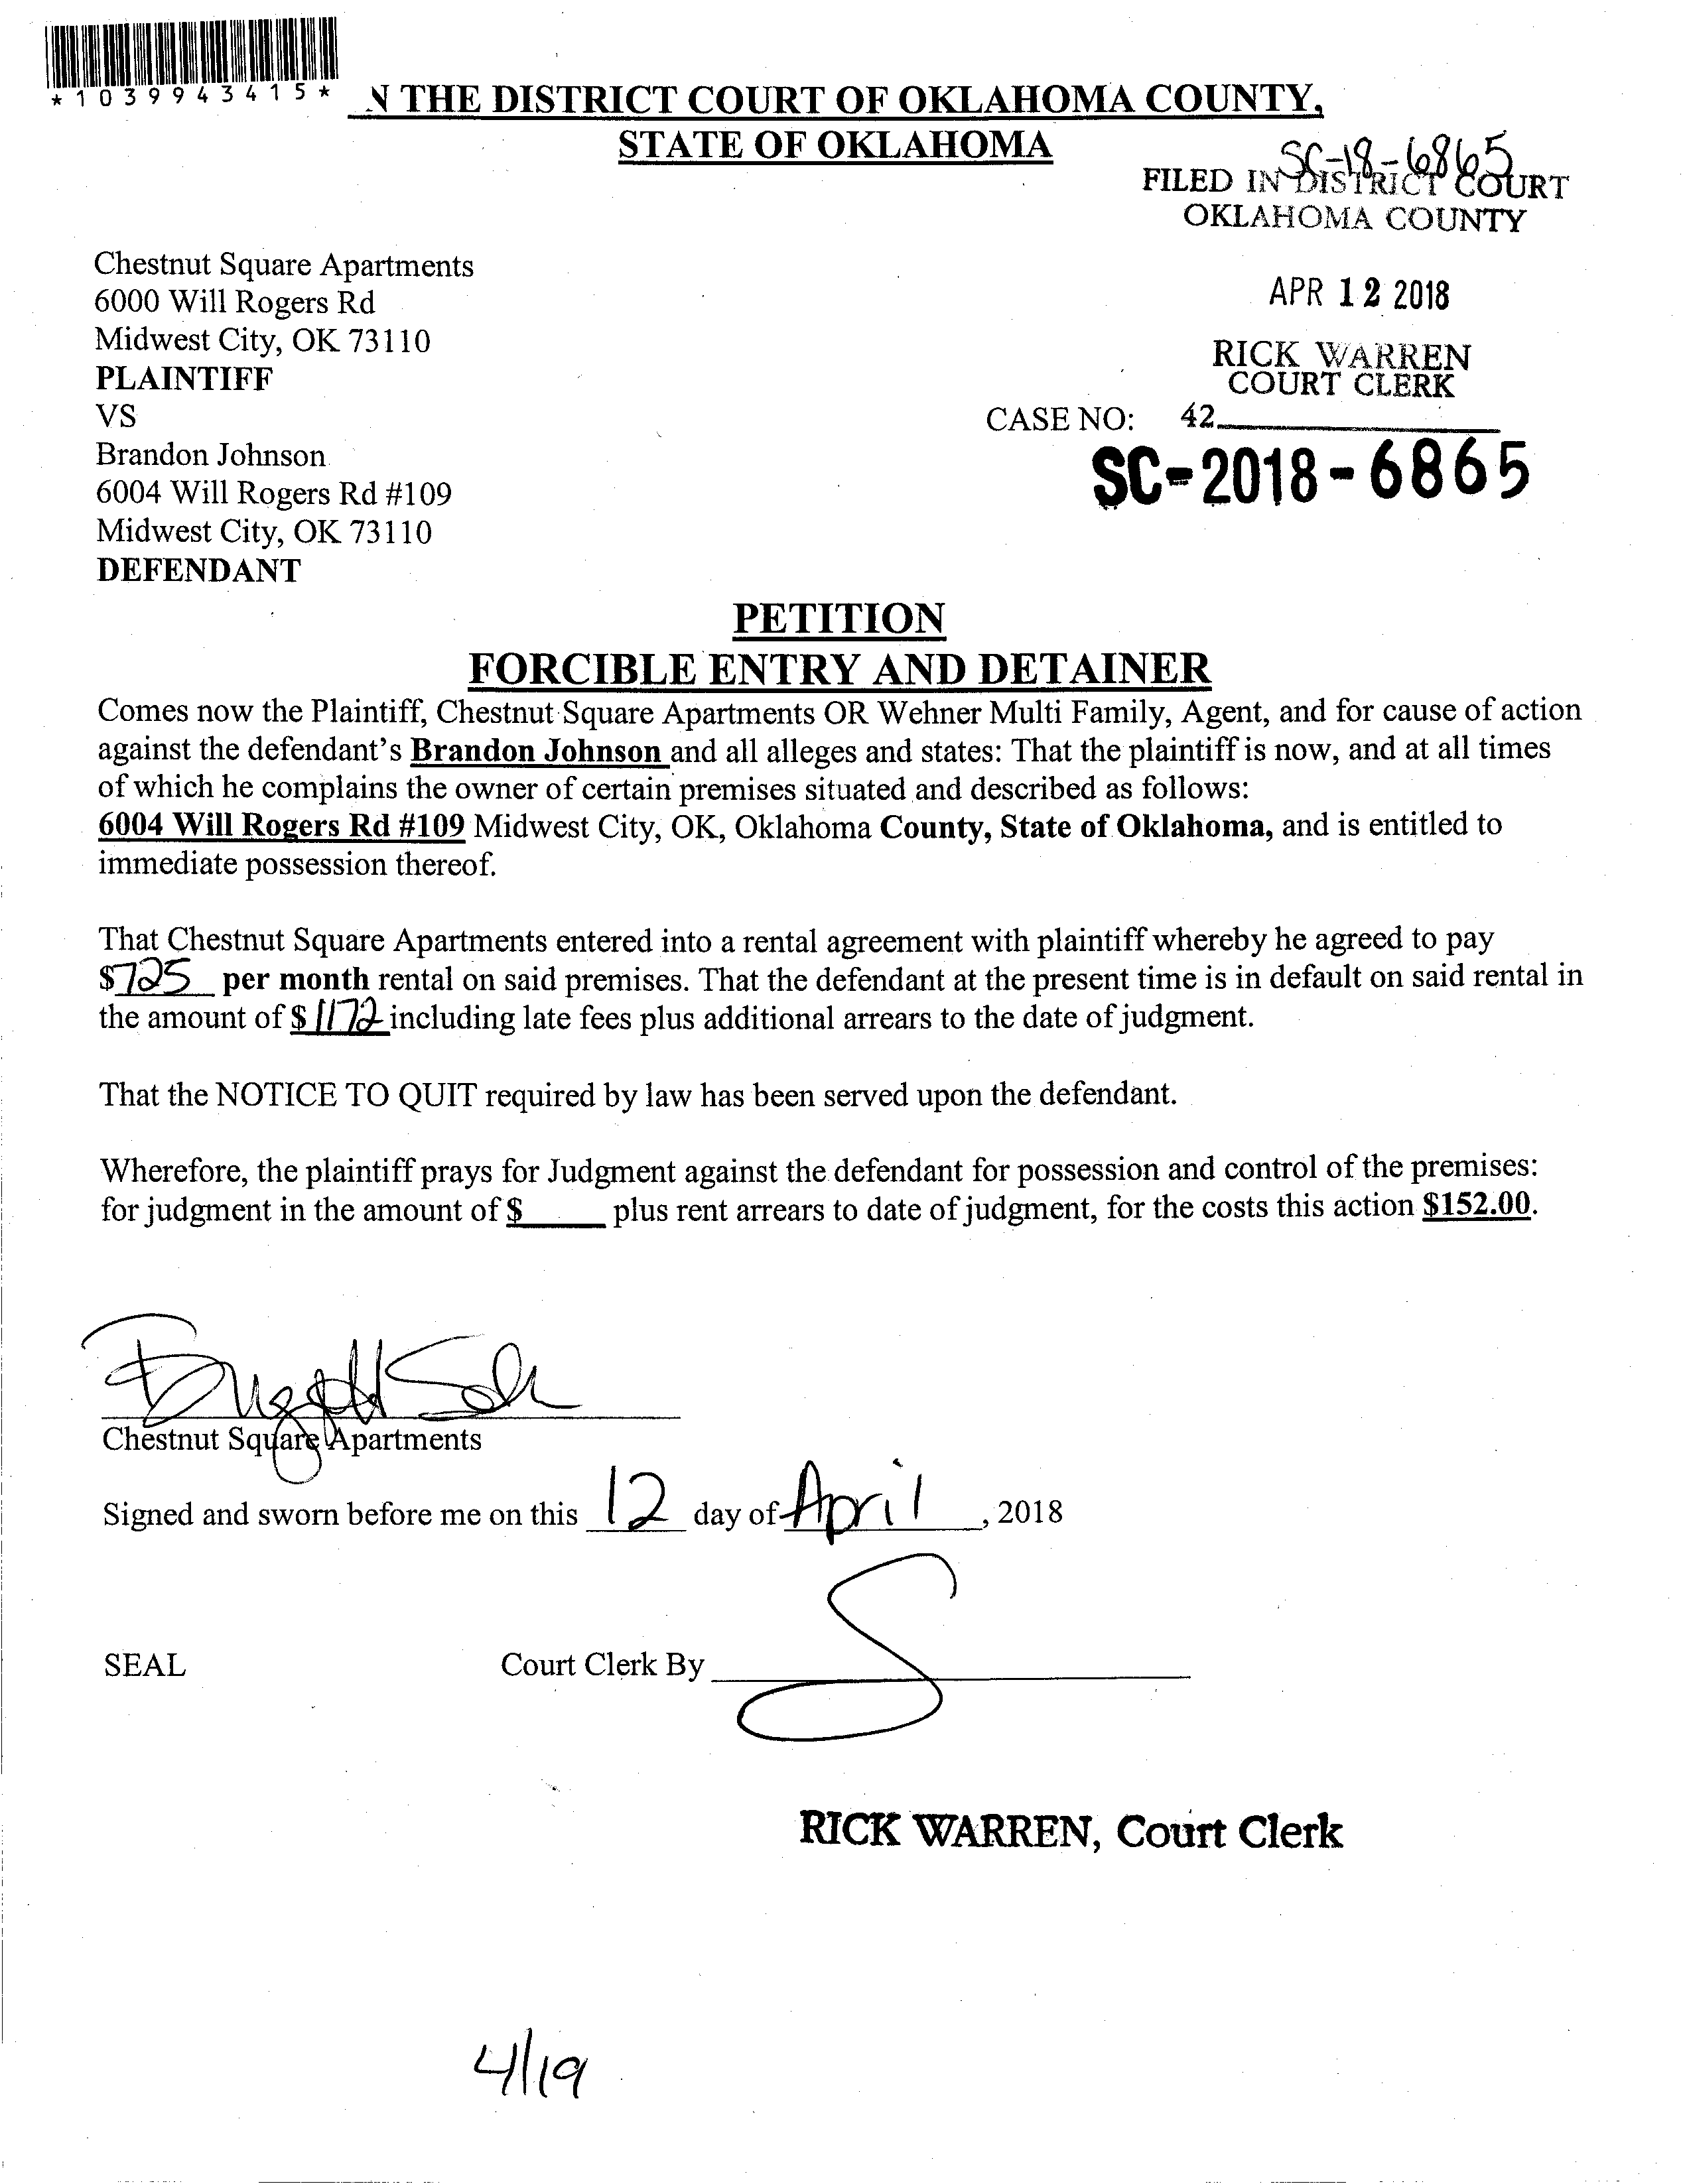 *1039943415*
N THE DISTRICT COURT OF OKLAHOMA COUNTY,
STATE OF OKLAHOMA
SC-18-6865
FILED IN DISTRICT COURT
OKLAHOMA COUNTY
APR 12 2018
RICK WARREN
COURT CLERK
42
Chestnut Square Apartments
6000 Will Rogers Rd
Midwest City, OK 73110
PLAINTIFF
VS
CASE NO:
SC-2018-6865
Brandon Johnson
6004 Will Rogers Rd #109
Midwest City, OK 73110
DEFENDANT
PETITION
FORCIBLE ENTRY AND DETAINER
Comes now the Plaintiff, Chestnut Square Apartments OR Wehner Multi Family, Agent, and for cause of action
against the defendant's Brandon Johnson and all alleges and states: That the plaintiff is now, and at all times
of which he complains the owner of certain premises situated and described as follows:
6004 Will Rogers Rd #109 Midwest City, OK, Oklahoma County, State of Oklahoma, and is entitled to
immediate possession thereof.
That Chestnut Square Apartments entered into a rental agreement with plaintiff whereby he agreed to pay
$725 per month rental on said premises. That the defendant at the present time is in default on said rental in
the amount of $1172 including late fees plus additional arrears to the date of judgment.
That the NOTICE TO QUIT required by law has been served upon the defendant.
Wherefore, the plaintiff prays for Judgment against the defendant for possession and control of the premises:
for judgment in the amount of $_____ plus rent arrears to date of judgment, for the costs this action $152.00.
Chestnut Square Apartments
Signed and sworn before me on this 12 day of April, 2018
SEAL Court Clerk By
RICK WARREN, Court Clerk
4/19